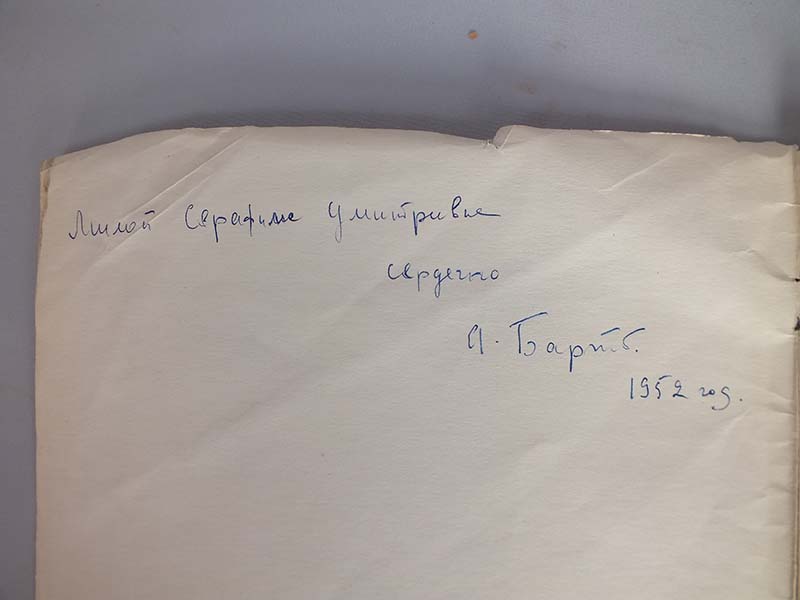 Милой Серафиме Дмитривне
сердечно
А. Барто.
1952 год.